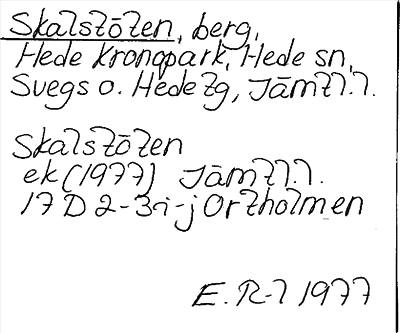 Skalstöten, berg,
Hede kronopark, Hede sn,
Svegs o. Hede tg, Jämtl.l.
Skalstöten
ek (1977) Jämtl.l.
17 D 2-3i-j Ortholmen
E. R-l 1977